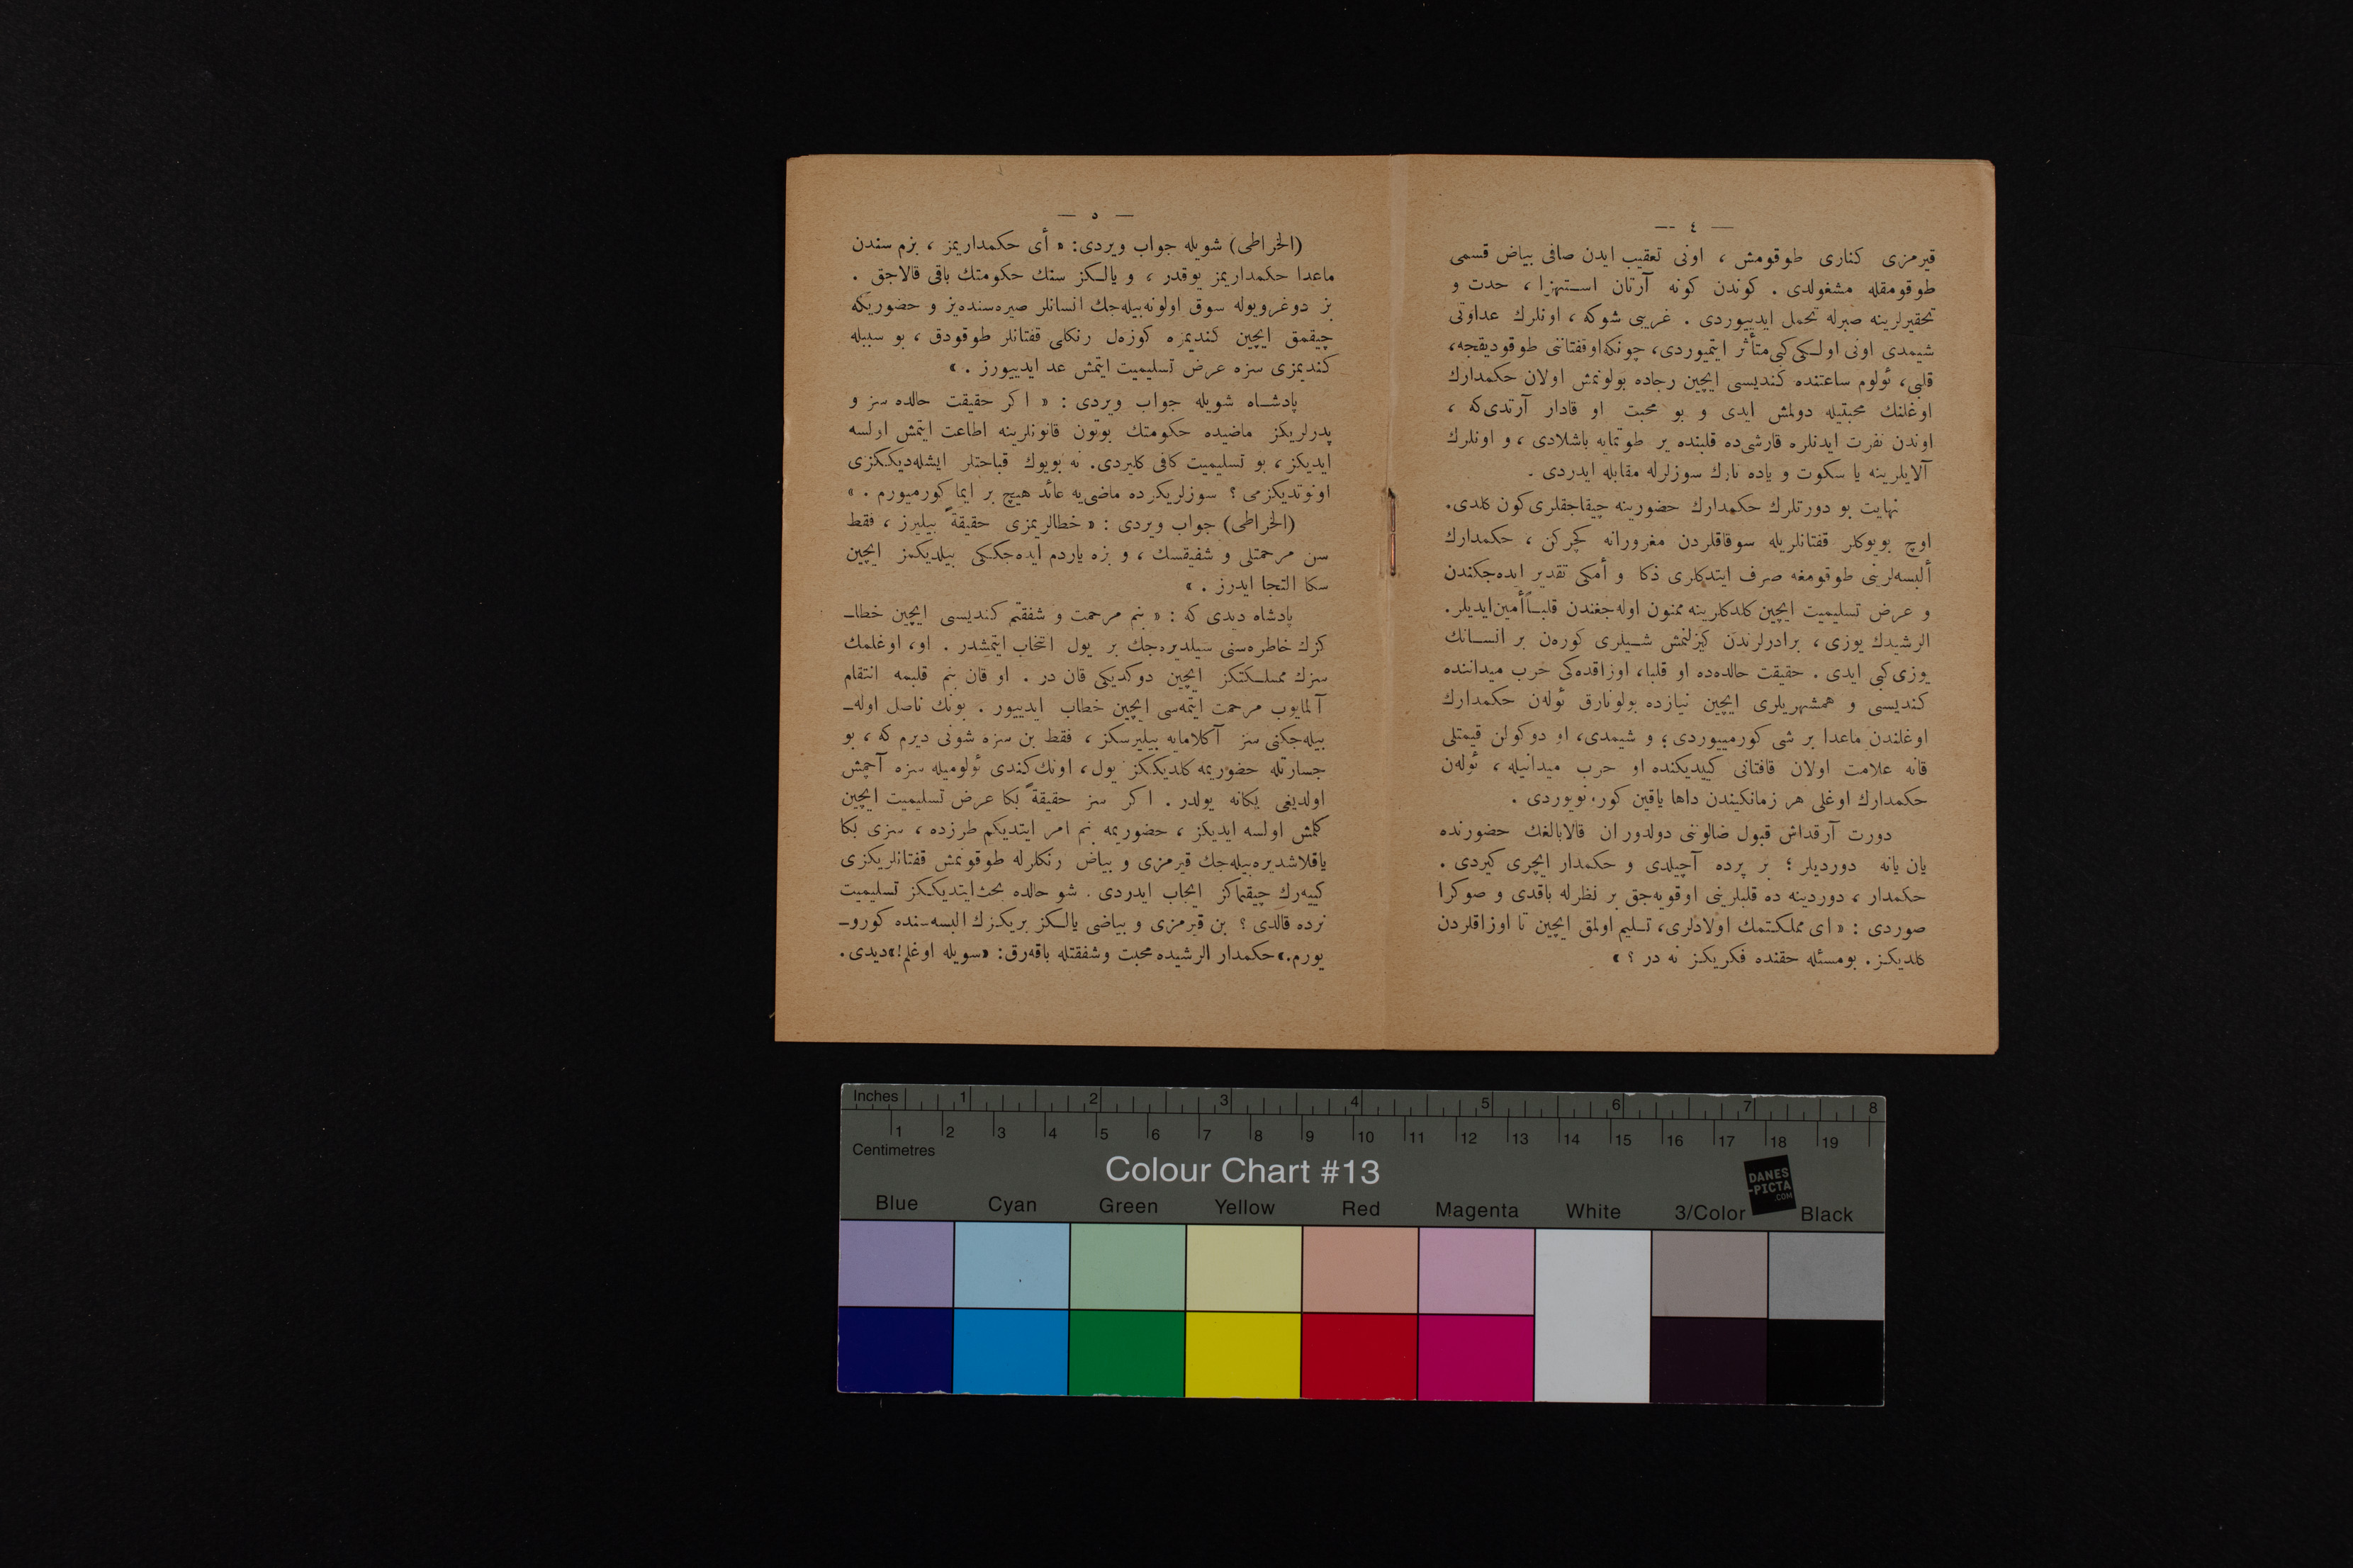 — ٤ —
قيرمزى كنارى طوقومش ، اونى تعقيب ايدن صافى بياض قسمى
طوقومقله مشغولدى . كوندن كونه آرتان استهزا ، حدت و
تحقيرلرينه صبرله تحمل ايدييوردى . غريبى شوكه ، اونلرك عداوتى
شيمدى اونى اولكى كبى متأثر ايتميوردى، چونكه اوقفتانى طوقوديقجه،
قلبى، ئولوم ساعتنده كنديسى ايچين رجاده بولونمش اولان حكمدارك
اوغلنك محبتيله دولمش ايدى و بو محبت او قادار آرتدى كه ،
اوندن نفرت ايدنلره قارشى ده قلبنده ير طوتمايه باشلادى ، و اونلرك
آلايلرينه يا سكوت و ياده نازك سوزلرله مقابله ايدردى .
نهايت بو دورتلرك حكمدارك حضورينه چيقاجقلرى كون كلدى.
اوچ بويوكلر قفتانلريله سوقاقلردن مغرورانه كچركن ، حكمدارك
ألبسه لرينى طوقومغه صرف ايتدكلرى ذكا و أمكى تقدير ايده جكندن
و عرض تسليميت ايچين كلدكلرينه ممنون اوله جغندن قلباً أمين ايديلر.
الرشيدك يوزى ، برادرلرندن كيزلنمش شيلرى كوره ن بر انسانك
يوزى كبى ايدى . حقيقت حالده ده او قلبا، اوزاقده كى حرب ميداننده
كنديسى و همشهريلرى ايچين نيازده بولونارق ئوله ن حكمدارك
اوغلندن ماعدا بر شى كورمييوردى ؛ و شيمدى، او دوكولن قيمتلى
قانه علامت اولان قافتانى كييديكنده او حرب ميدانيله ، ئوله ن
حكمدارك اوغلى هر زمانكيندن داها ياقين كورونويوردى .
دورت آرقداش قبول صالوننى دولدوران قالابالغك حضورنده
يان يانه دورديلر ؛ بر پرده آچيلدى و حكمدار ايچرى كيردى .
حكمدار ، دوردينه ده قلبلرينى اوقويه جق بر نظرله باقدى و صوكرا
صوردى : « اى مملكتمك اولادلرى، تسليم اولمق ايچين تا اوزاقلردن
كلديكز. بومسئله حقنده فكريكز نه در ؟ »
— ٥ —
(الخراطى) شويله جواب ويردى: « أى حكمداريمز ، بزم سندن
ماعدا حكمداريمز يوقدر ، و يالكز سنك حكومتك باقى قالاجق .
بز دوغرويوله سوق اولونه بيله جك انسانلر صيره سنده يز و حضوريكه
چيقمق ايچين كنديمزه كوزه ل رنكلى قفتانلر طوقودق ، بو سببله
كنديمزى سزه عرض تسليميت ايتمش عد ايدييورز . »
پادشاه شويله جواب ويردى : « اكر حقيقت حالده سز و
پدرلريكز ماضيده حكومتك بوتون قانونلرينه اطاعت ايتمش اولسه
ايديكز ، بو تسليميت كافى كليردى. نه بويوك قباحتلر ايشله ديككزى
اونوتديكزمى ؟ سوزلريكزده ماضى يه عائد هيچ بر ايما كورميورم . »
(الخراطى) جواب ويردى : « خطالريمزى حقيقةً بيليرز ، فقط
سن مرحمتلى و شفيقسك ، و بزه ياردم ايده جككى بيلديكمز ايچين
سكا التجا ايدرز . »
پادشاه ديدى كه : « بنم مرحمت و شفقتم كنديسى ايچين خطا-
كزك خاطره سنى سيلديره جك بر يول انتخاب ايتمشدر . او، اوغلمك
سزك مملكتكز ايچين دوكديكى قان در . او قان بنم قلبمه انتقام
آلمايوب مرحمت ايتمه سى ايچين خطاب ايدييور . بونك ناصل اوله-
بيله جكنى سز آكلامايه بيليرسكز ، فقط بن سزه شونى ديرم كه ، بو
جسارتله حضوريمه كلديككز يول، اونك كندى ئولوميله سزه آچمش
اولديغى يكانه يولدر . اكر سز حقيقةً بكا عرض تسليميت ايچين
كلمش اولسه ايديكز ، حضوريمه بنم امر ايتديكم طرزده ، سزى بكا
ياقلاشديره بيله جك قيرمزى و بياض رنكلرله طوقونمش قفتانلريكزى
كييه رك چيقماكز ايجاب ايدردى . شو حالده بحث ايتديككز تسليميت
نرده قالدى ؟ بن قيرمزى و بياضى يالكز بريكزك البسه سنده كورو-
يورم.» حكمدار الرشيده محبت وشفقتله باقه رق: «سويله اوغلم!» ديدى.
Inches 1 2 3 4 5 6 7 8
1 2 3 4 5 6 7 8 9 10 11 12 13 14 15 16 17 18 19
Centimetres
Colour Chart #13
DANES
-PICTA
.COM
Blue Cyan Green Yellow Red Magenta White 3/Color Black